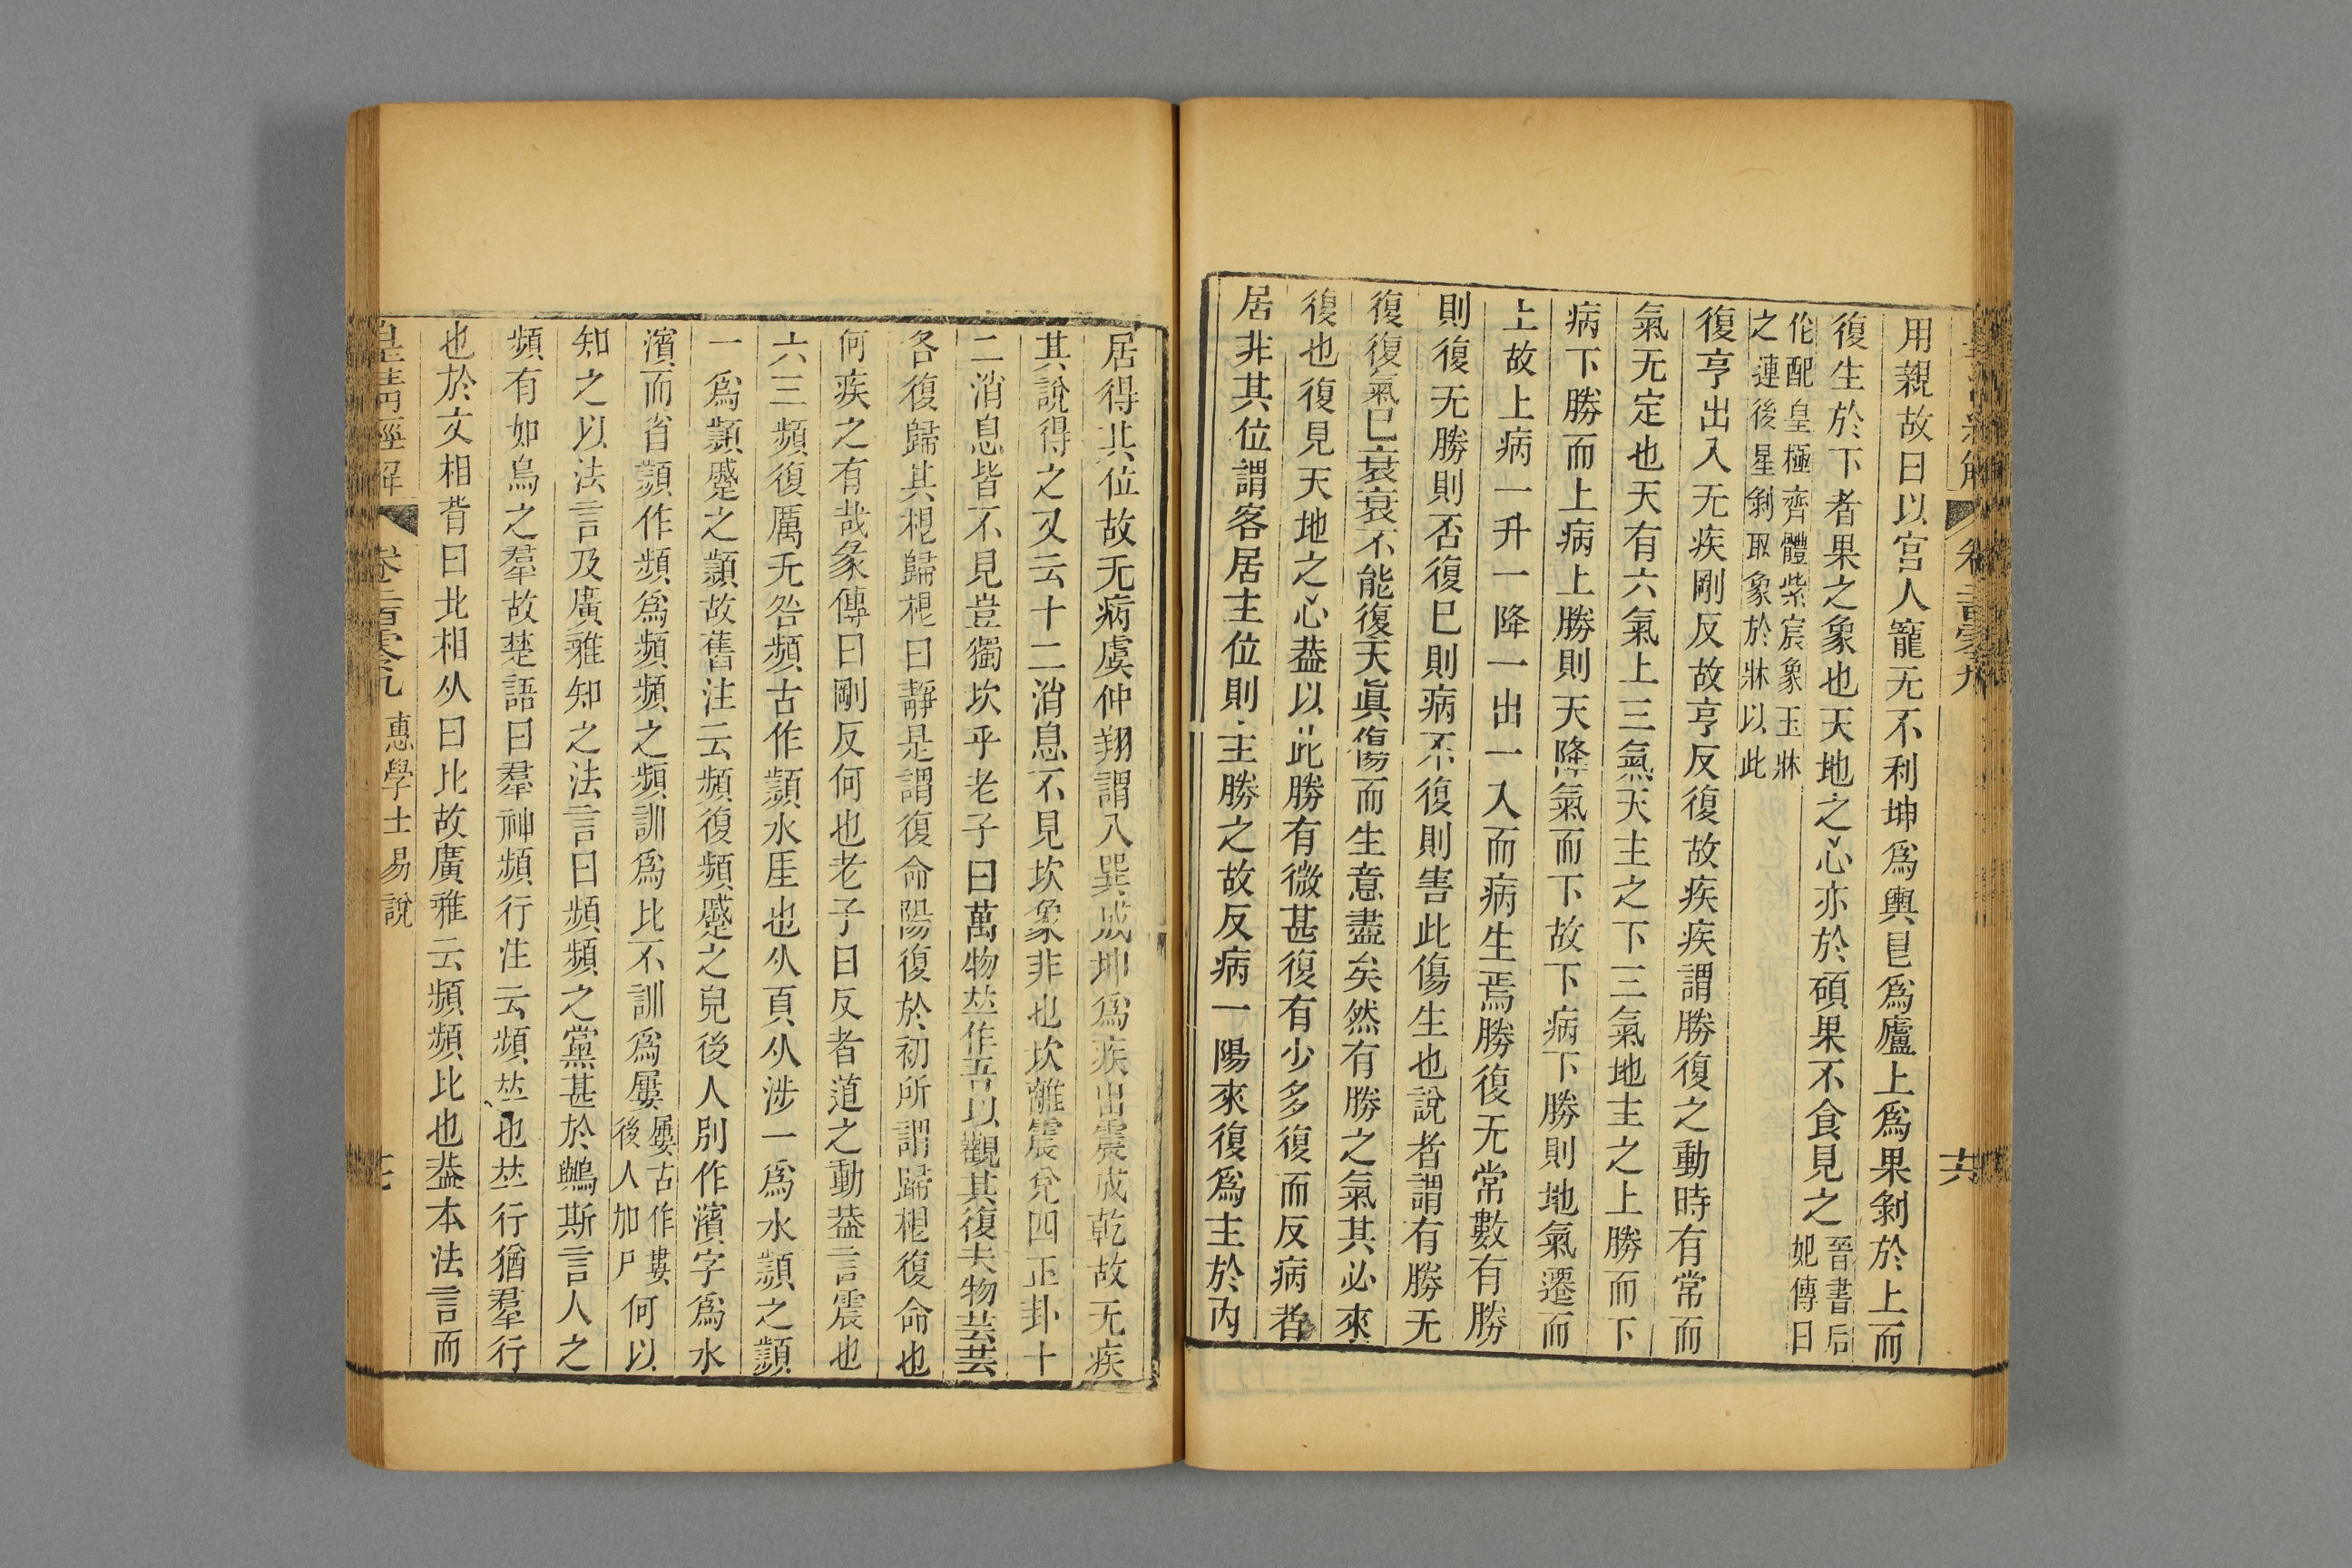 皇清經解 卷二百零九 十六
用親故曰以宮人寵无不利坤爲輿艮爲廬上爲果剝於上而
復生於下者果之象也天地之心亦於碩果不食見之晉書后妃傳曰
伦配皇極齊體紫宸象玉牀之連後星剝取象於牀以此
復亨出入无疾剛反故亨反復故疾疾謂勝復之動時有常而
氣无定也天有六氣上三氣天主之下三氣地主之上勝而下
病下勝而上病上勝則天降氣而下故下病下勝則地氣遷而
上故上病一升一降一出一入而病生焉勝復无常數有勝
則復无勝則否復已則病不復則害此傷生也說者謂有勝无
復復氣已衰衰不能復天眞傷而生意盡矣然有勝之氣其必來
復也復見天地之心葢以此勝有微甚復有少多復而反病者
居非其位謂客居主位則主勝之故反病一陽來復爲主於內
居得其位故无病虞仲翔謂入巽成坤爲疾出震成乾故无疾
其說得之又云十二消息不見坎象非也坎離震兌四正卦十
二消息皆不見豈獨坎乎老子曰萬物竝作吾以觀其復夫物芸芸
各復歸其根歸根曰靜是謂復命陽復於初所謂歸根復命也
何疾之有哉彖傳曰剛反何也老子曰反者道之動葢言震也
六三頻復厲无咎頻古作顰水厓也从頁从涉一爲水顰之顰
一爲顰蹙之顰故舊注云頻復頻蹙之皃後人別作濱字爲水
濱而省顰作頻爲頻頻之頻訓爲比不訓爲屢屢古作婁後人加尸何以
知之以法言及廣雅知之法言曰頻頻之黨甚於鸒斯言人之
頻有如鳥之羣故楚語曰羣神頻行注云頻竝也竝行猶羣行
也於文相背曰北相从曰比故廣雅云頻頻比也葢本法言而
皇清經解 卷二百零九 惠學士易說 十七